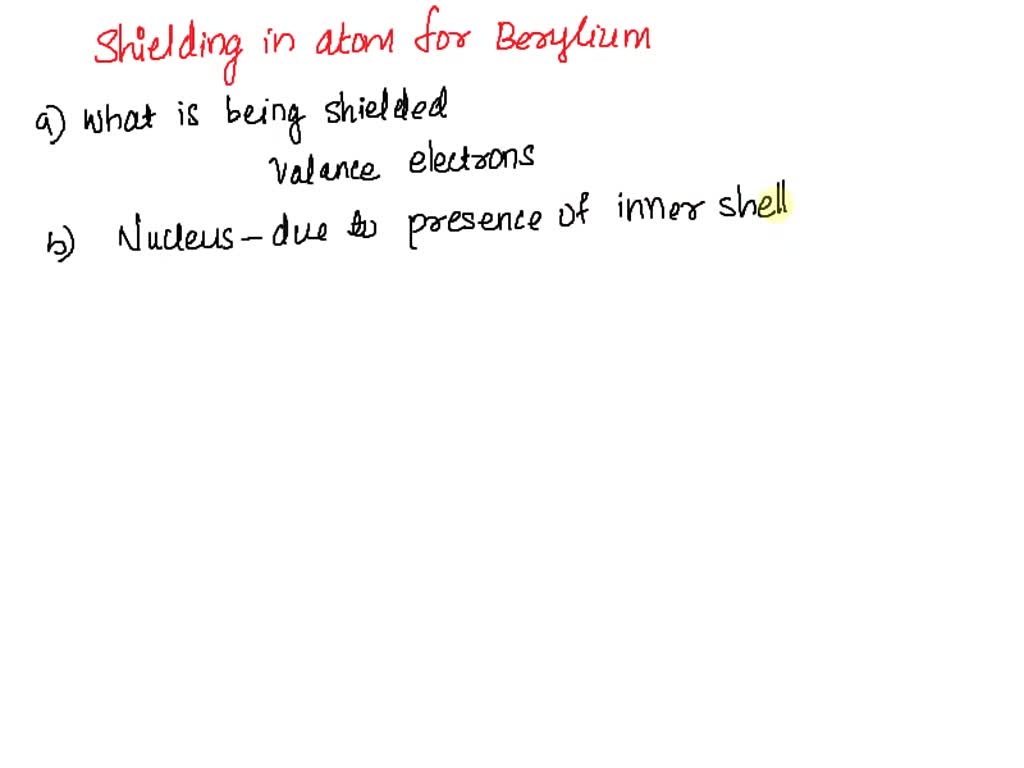 Shielding in atom for Berylium
a) What is being shielded
Valance electrons
b) Nucleus - due to presence of inner shell